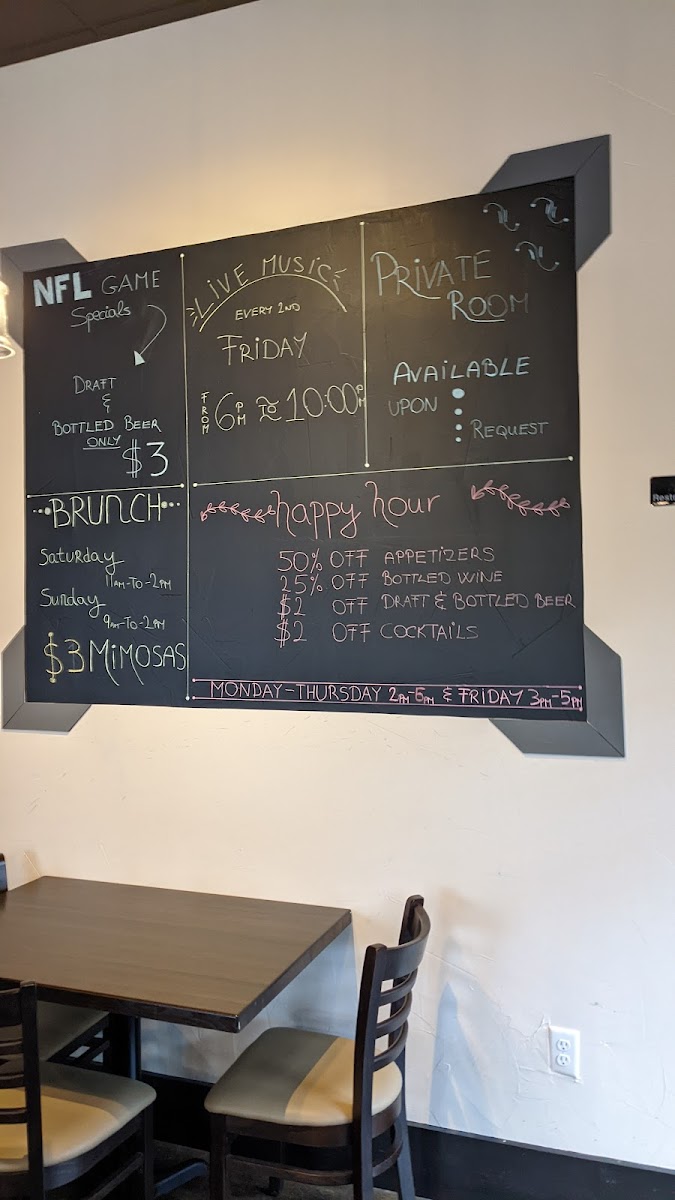 NFL GAME
Specials
DRAFT
&
BOTTLED BEER
ONLY $3
LIVE MUSIC
EVERY 2ND
FRIDAY
FROM 6PM TO 10:00PM
PRIVATE
ROOM
AVAILABLE
UPON
REQUEST
BRUNCH
Saturday
11AM-TO-2PM
Sunday
9AM-TO-2PM
$3 MIMOSAS
happy hour
50% OFF APPETIZERS
25% OFF BOTTLED WINE
$2 OFF DRAFT & BOTTLED BEER
$2 OFF COCKTAILS
MONDAY-THURSDAY 2PM-6PM & FRIDAY 3PM-5PM